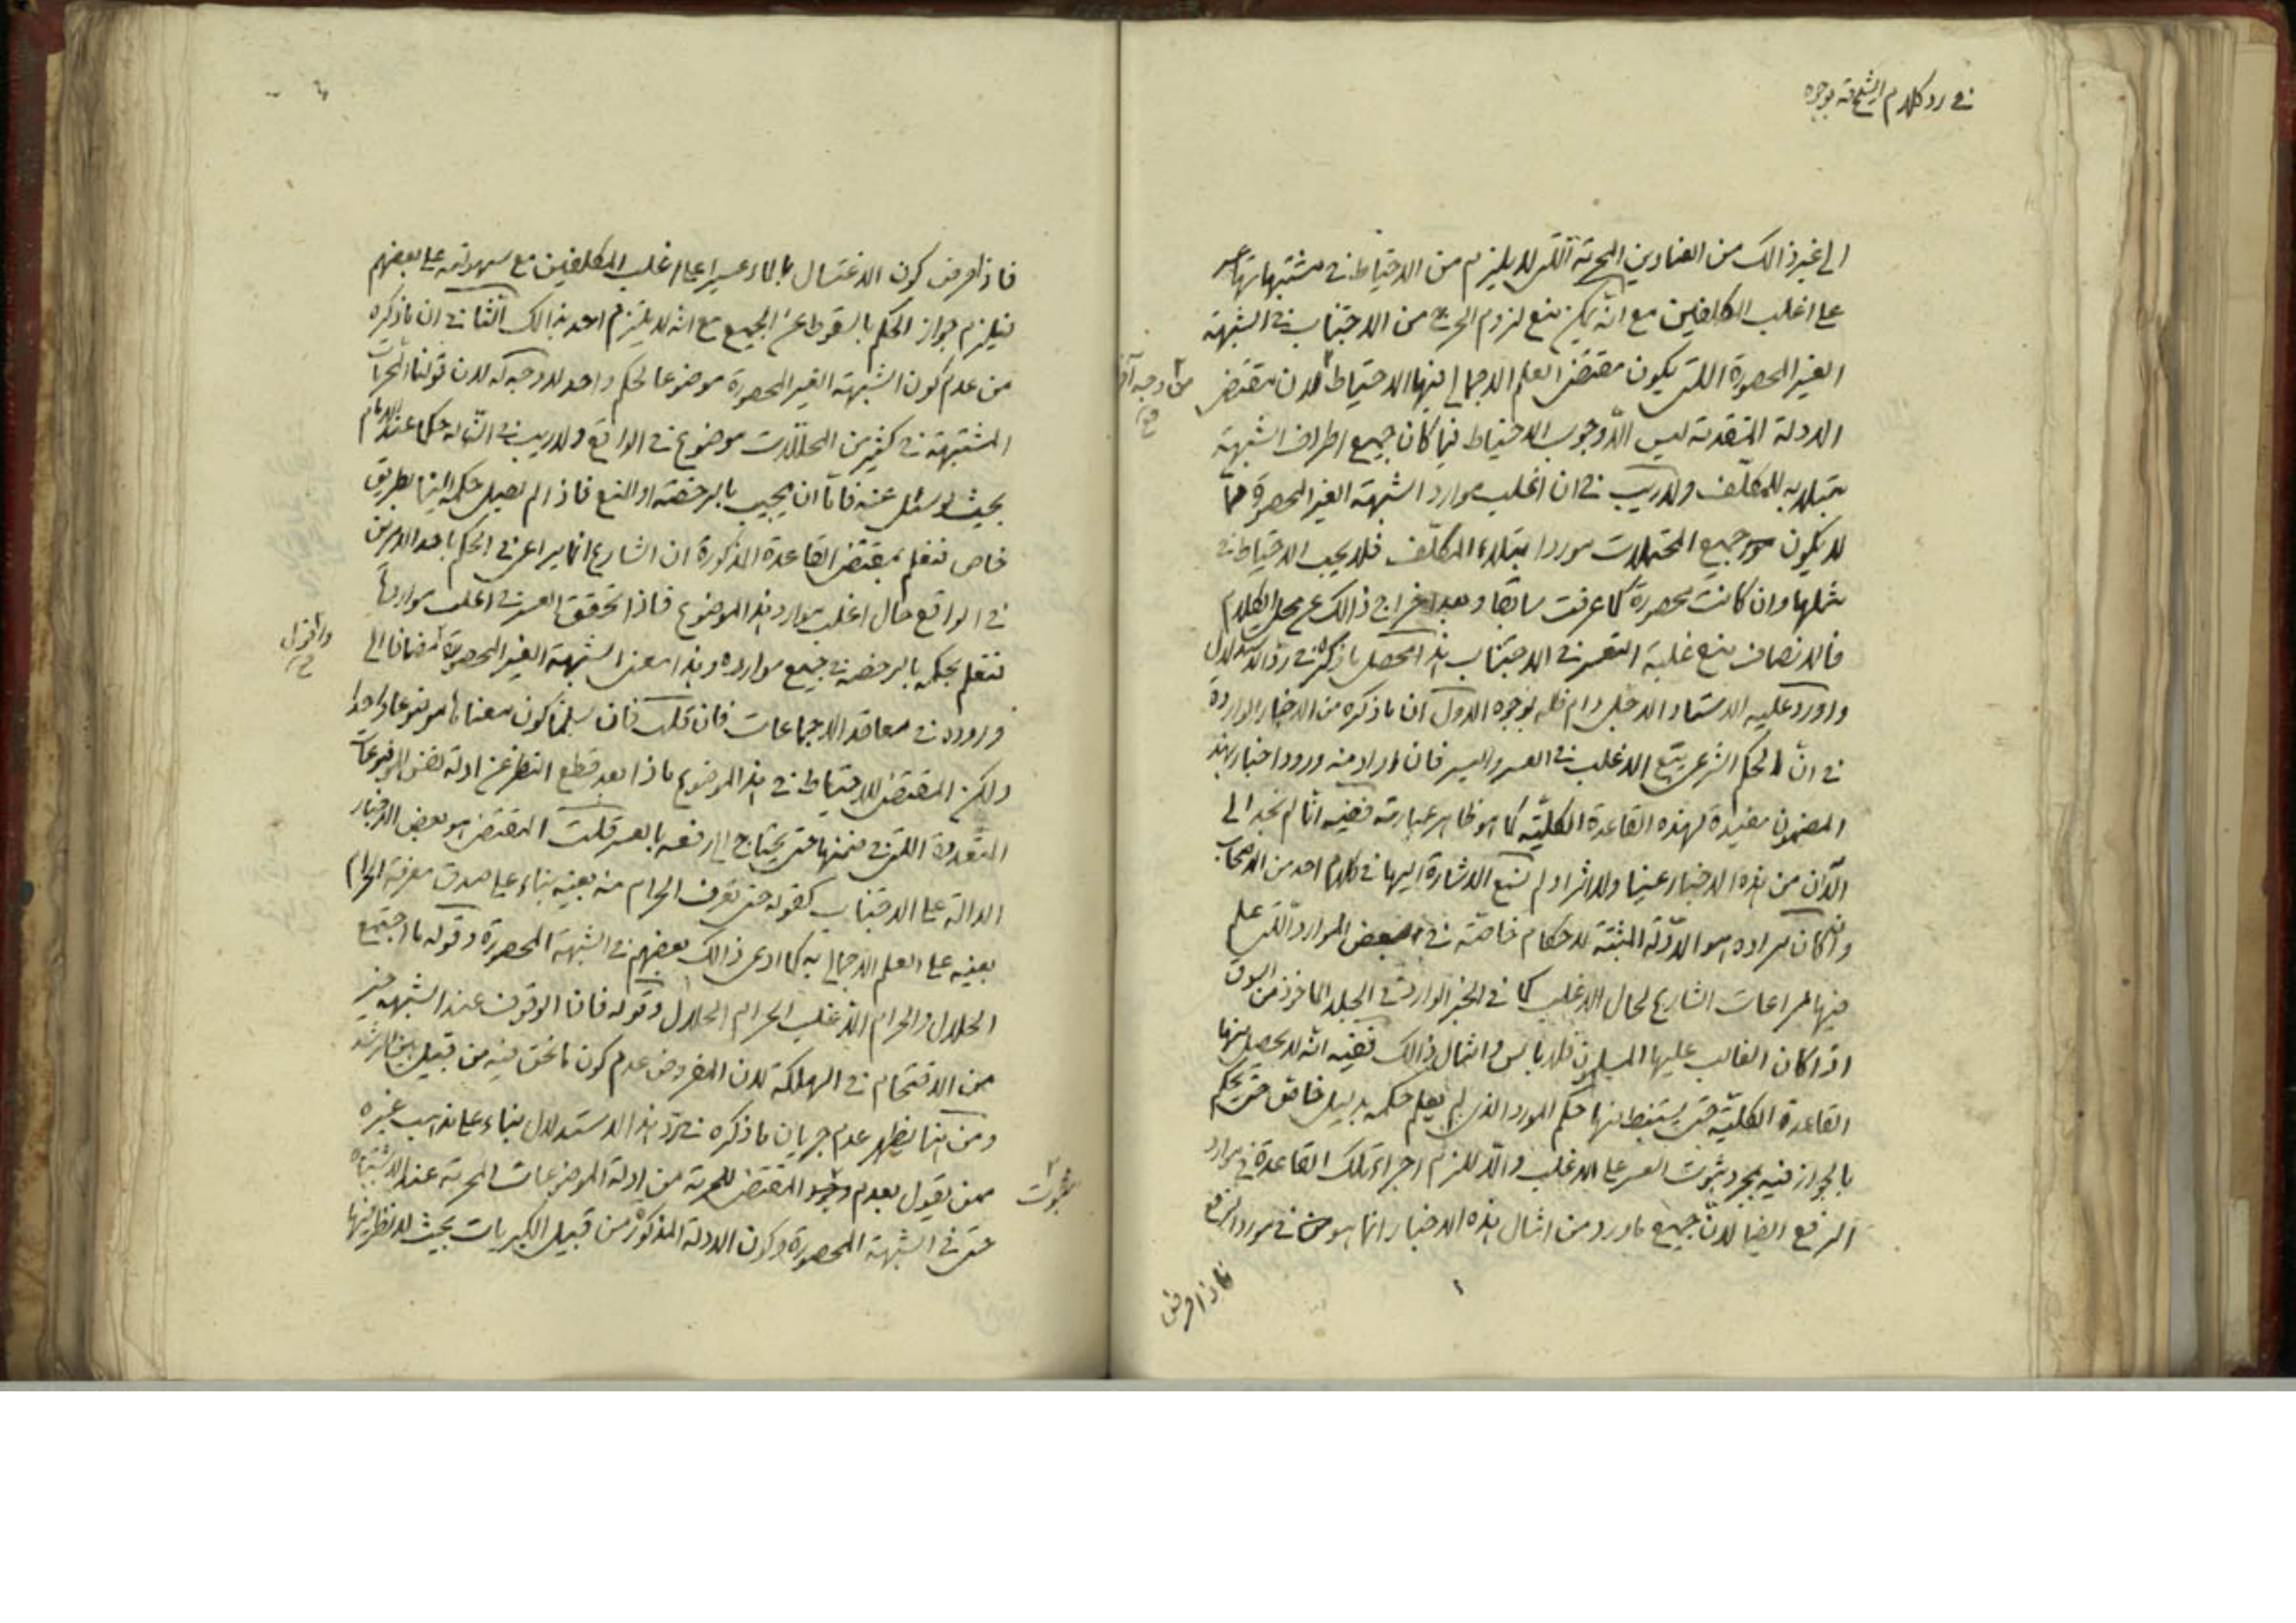 في رد كلام الشيخ قه بوجوه
الى غير ذالك من العناوين المحرمة التي لا يلزم من الاحتياط في مشتبهاتها عسر
على اغلب المكلفين مع انه يمكن منع لزوم الحرج من الاجتناب في الشبهة
الغير المحصورة اللتي يكون مقتضى العلم الاجمالي فيها الاحتياط لان مقتضى
من وجه آخر
الادلة المتقدمة ليس الا وجوب الاحتياط فيما كان جميع اطراف الشبهة
مبتلا به للمكلف ولا ريب في ان اغلب موارد الشبهة الغير المحصورة مما
لا يكون جميع المحتملات موردا بتلاء المكلف فلا يجب الاحتياط في
مثلها وان كانت محصورة كما عرفت سابقا وبعد اخراج ذالك عن محل الكلام
فالانصاف منع غلبة التعسر في الاجتناب هذا محصل ما ذكره في رد الاستدلال
واورد عليه الاستاد الاجل دام ظله بوجوه الاول ان ما ذكره من الاخبار الواردة
في ان الحكم الشرعي يتبع الاغلب في العسر واليسر فان اراد منه ورود اخبار بهذ
المضمون مفيدة لهذه القاعدة الكلية كما هو ظاهر عبارته ففيه انا لم نجد الى
الآن من هذه الاخبار عينا ولا اثرا ولم نسمع الاشارة اليها في كلام احد من الاصحاب
وان كان مراده هو الادلة المثبتة لاحكام خاصة في بعض الموارد اللتي علم
فيها مراعات الشارع لحال الاغلب كما في الخبر الوارد في الجلد الماخوذ من السوق
اذا كان الغالب عليها المسلمون فلا باس وامثال ذالك ففيه انه لا يحصل منها
القاعدة الكلية حتى يستنبط منها حكم المورد الذي لم يعلم حكمه بدليل خاص حتى يحكم
بالجواز فيه بمجرد ثبوت العسر على الاغلب والا للزم اجراء تلك القاعدة في موارد
الرفع ايضا لان جميع ما ورد من امثال هذه الاخبار انما هو في مورد الرفع
فاذا فرض
فاذا فرض كون الاغتسال بالماء عسيرا على اغلب المكلفين مع سهولته على بعضهم
فيلزم جواز الحكم بالسقوط عن الجميع مع انه لا يلتزم احد بذالك الثاني ان ما ذكره
من عدم كون الشبهة الغير المحصورة موضوعا لحكم واحد لا وجه له لان قولنا المحرمات
المشتبهة في كثير من المحللات موضوع في الواقع ولا ريب في ان له حكما عند الامام
بحيث لو سئل عنه فاما ان يجيب بالرخصة او المنع فاذا لم يصل حكمه الينا بطريق
خاص فنعلم بمقتضى القاعدة المذكورة ان الشارع انما يراعي في الحكم باحد الامرين
في الواقع حال اغلب موارد هذا الموضوع فاذا تحقق العسر في اغلب مواردها
فنعلم بحكمه بالرخصة في جميع موارده وهذا معنى الشبهة الغير المحصورة مضافا الى
واقول
وروده في معاقد الاجماعات فان قلت فان سلمنا كون معناها موضوعا واحدا
ولكن المقتضى للاحتياط في هذا الموضوع ماذا بعد قطع النظر عن ادلة نفس الموضوعات
المتعددة اللتي في ضمنها حتى يحتاج الى رفعه بالعسر قلت المقتضى هو بعض الاخبار
الدالة على الاجتناب كقوله حتى تعرف الحرام منه بعينه بناء على صدق معرفة الحرام
بعينه على العلم الاجمالي به كما ادعى ذالك بعضهم في الشبهة المحصورة وقوله ما اجتمع
الحلال والحرام الا غلب الحرام الحلال وقوله فان الوقوف عند الشبهة خير
من الاقتحام في الهلكة لان المفروض عدم كون ما نحن فيه من قبيل
ومن هنا يظهر عدم جريان ما ذكره في رد هذا الاستدلال بناء على مذهب غيره
ممن يقول بعدم ثبوت المقتضى للحرمة من ادلة الموضوعات المحرمة عند الاشتباه
حتى في الشبهة المحصورة وكون الادلة المذكورة من قبيل الكبريات بحيث لا نظر فيها